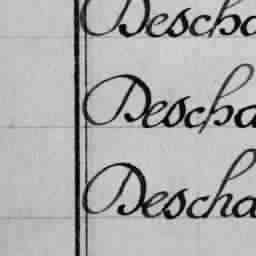 Descha
Descha
Descha